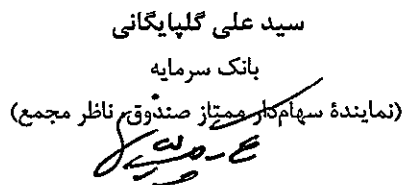 سید علی گلپایگانی
بانک سرمایه
(نمایندهٔ سهام‌دار ممتاز صندوق، ناظر مجمع)